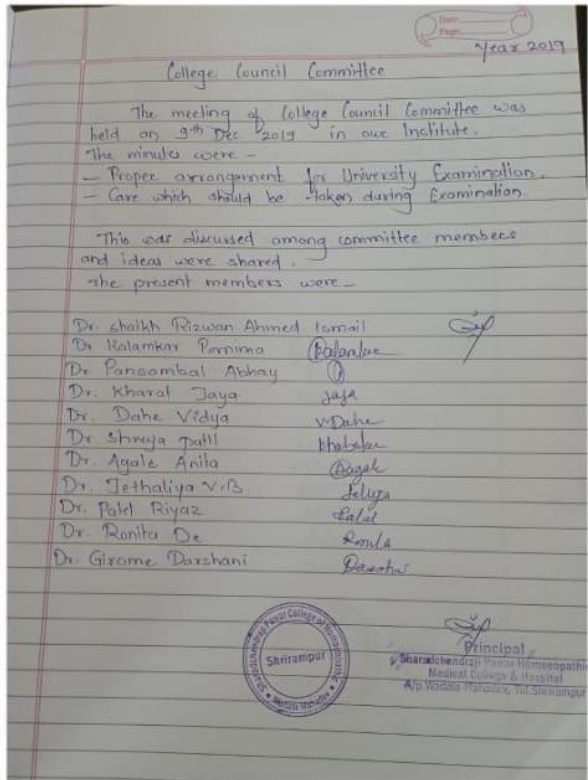 Date
Page
Year 2019
College Council Committee
The meeting of College Council Committee was
held on 9th Dec 2019 in our Institute.
The minutes were -
- Proper arrangement for University Examination.
- Care which should be taken during Examination.
This was discussed among committee members
and ideas were shared.
The present members were -
Dr. Shaikh Rizwan Ahmed Ismail
Dr Kalamkar Pornima
Dr Pansambal Abhay
Dr. Kharat Jaya Jaya
Dr. Dahe Vidya V.Dahe
Dr. Shreya Patil
Dr. Agale Anita Aagale
Dr. Jethaliya V.B.
Dr. Patel Riyaz
Dr. Ronita De
Dr. Girome Darshani
Sharadchandraji Pawar College of Homoeopathic
Shrirampur
Wadala Mahadev
Principal
Sharadchendraji Pawar Homoeopathic
Medical College & Hospital
A/p. Wadala Mahadev, Tal. Shrirampur